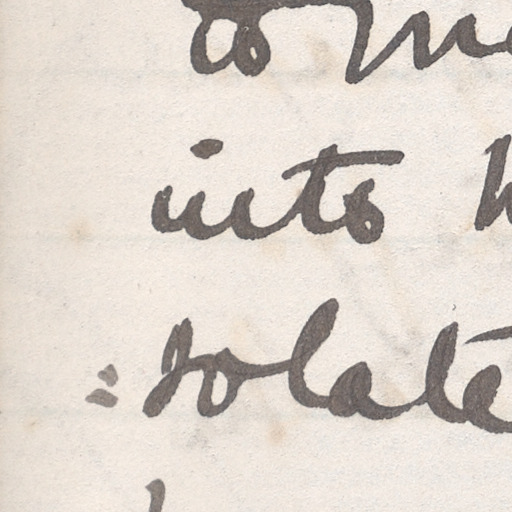 to
into
=solate